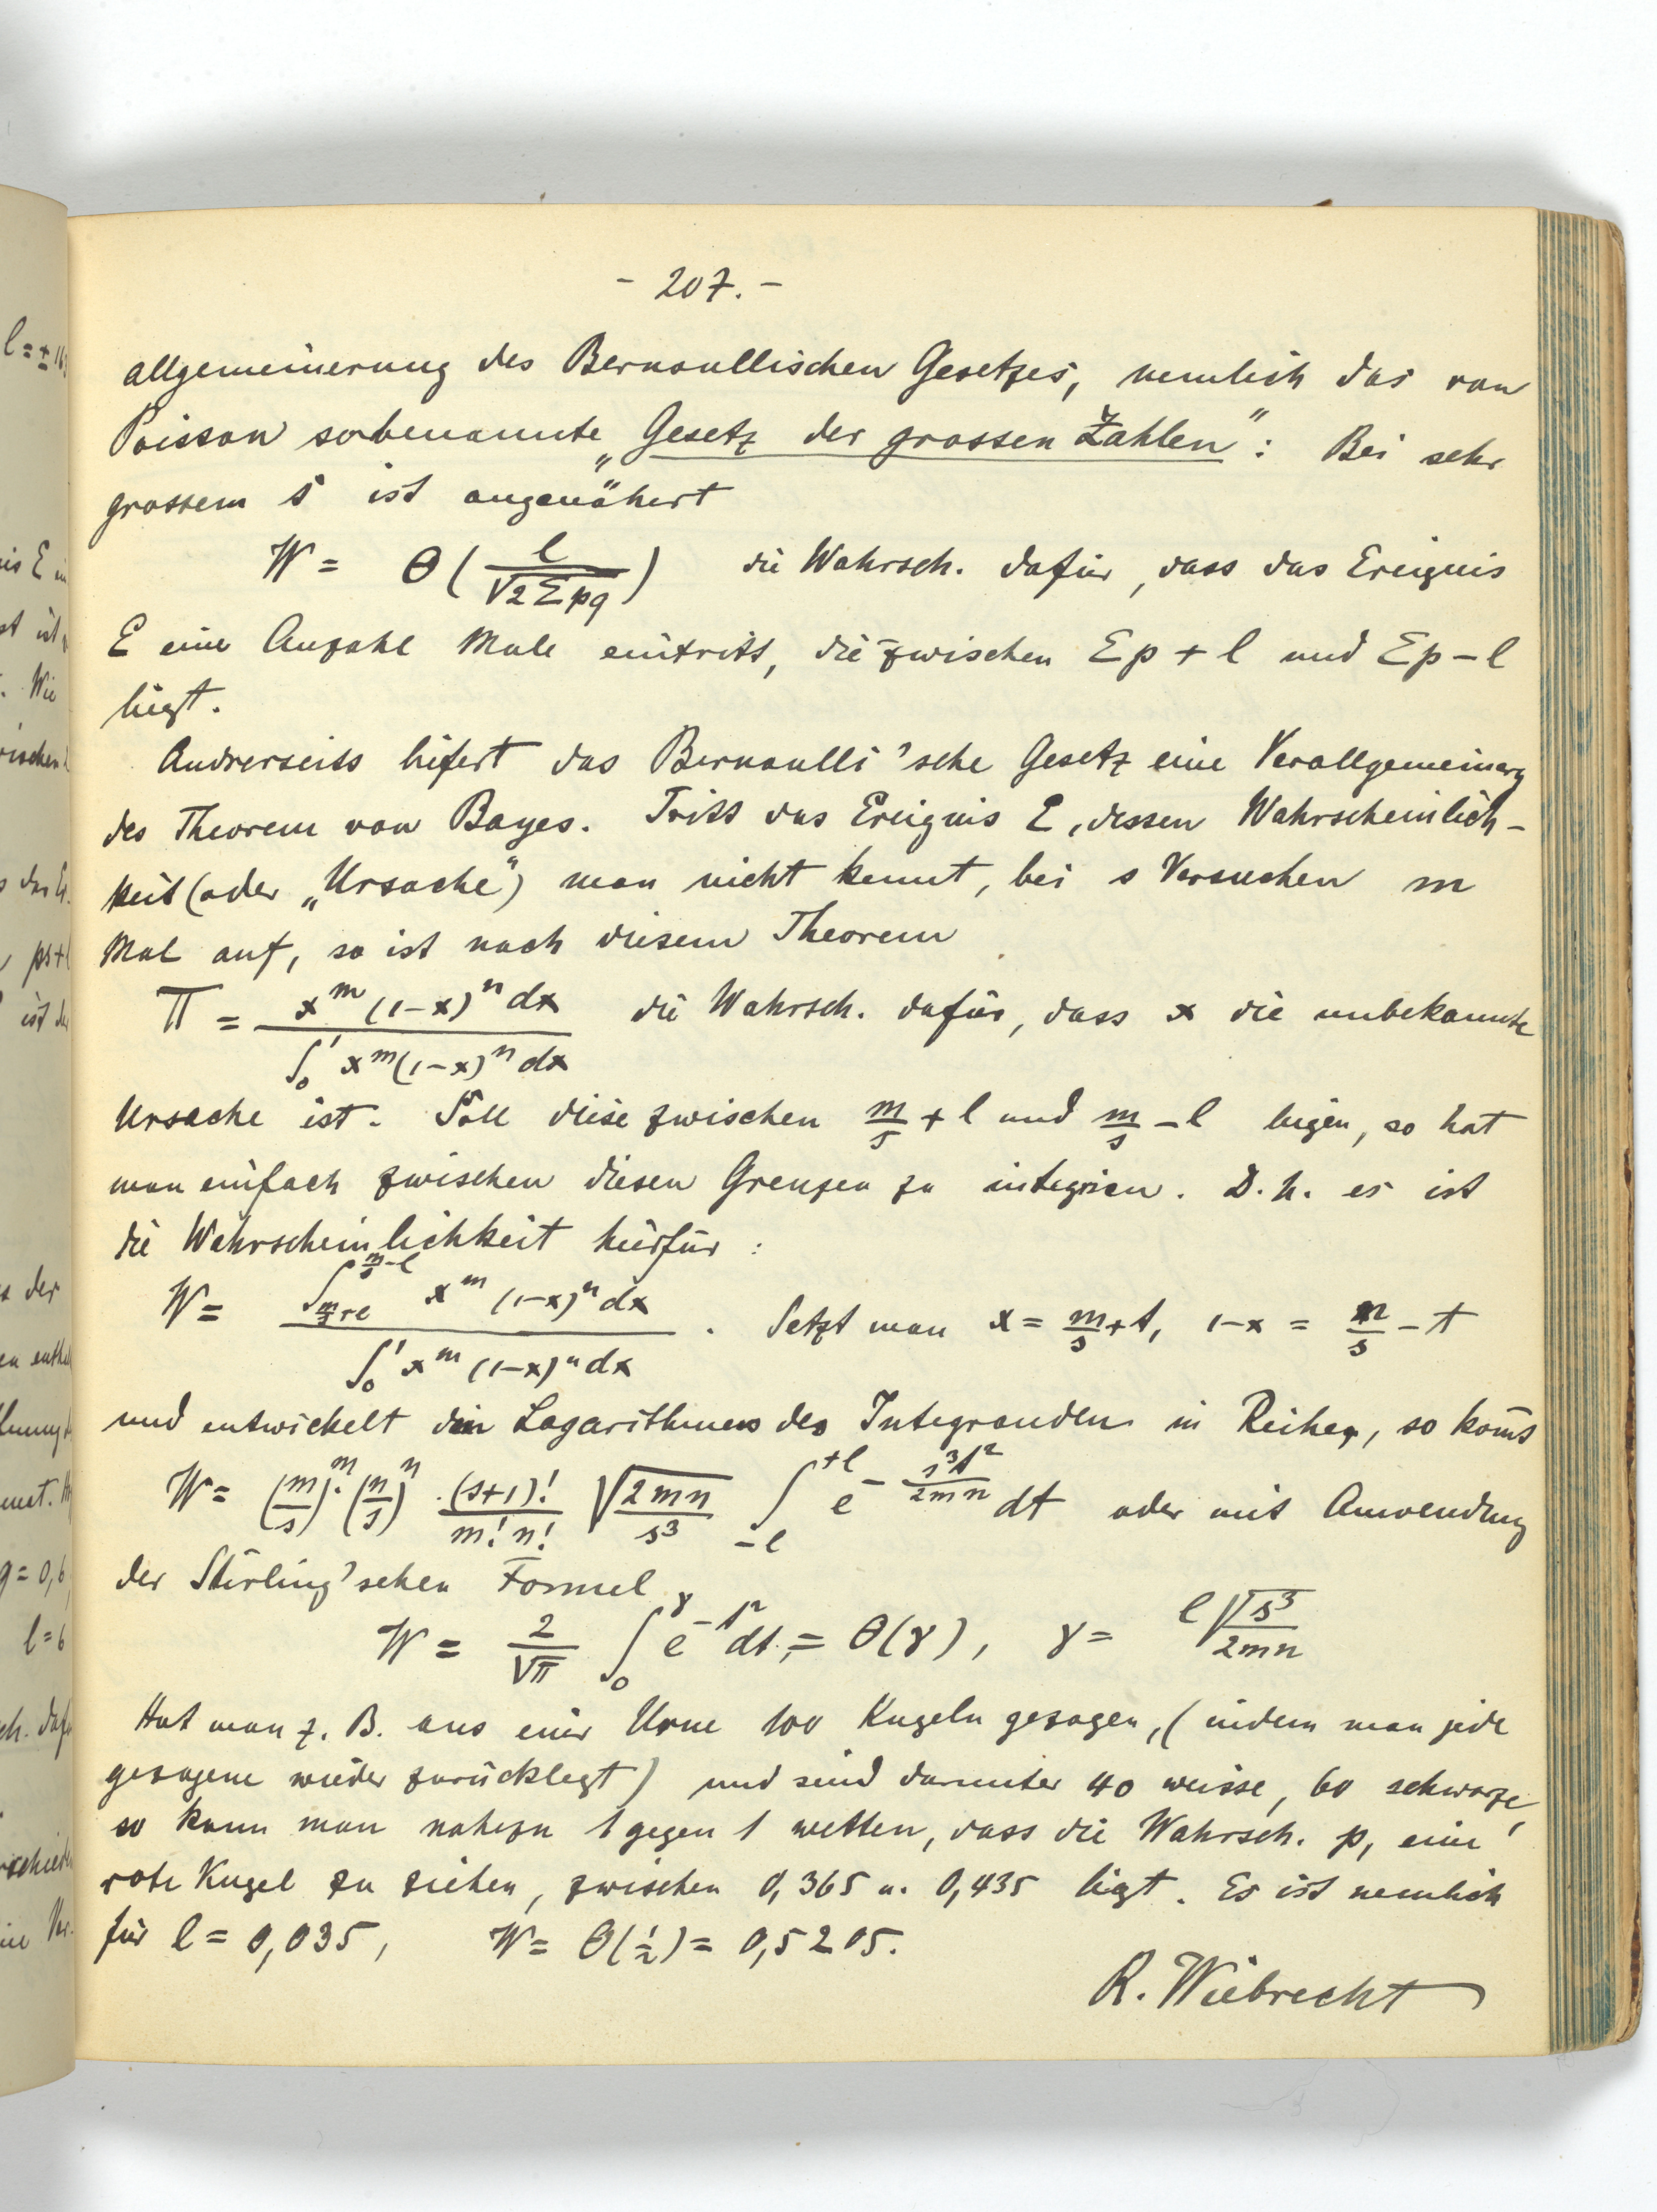 - 207. -
allgemeinerung des Bernoullischen Gesetzes, nemlich das von
Poisson sobenannte „Gesetz der grossen Zahlen": Bei sehr
grossem s ist angenähert
W = Θ(l/√2Σpq) die Wahrsch. dafür, dass das Ereignis
E eine Anzahl Male eintritt, die zwischen Σp + l und Σp - l
liegt.
Andrerseits liefert das Bernoulli'sche Gesetz eine Verallgemeinerg
des Theorem von Bayes. Tritt das Ereignis E, dessen Wahrscheinlich-
keit (oder „Ursache") man nicht kennt, bei s Versuchen m
Mal auf, so ist nach diesem Theorem
Π = x^m (1-x)^n dx / ∫_0^1 x^m (1-x)^n dx die Wahrsch. dafür, dass x die unbekannte
Ursache ist. Soll diese zwischen m/s + l und m/s - l liegen, so hat
man einfach zwischen diesen Grenzen zu integrieren. D.h. es ist
die Wahrscheinlichkeit hierfür:
W = ∫_{m/s+l}^{m/s-l} x^m (1-x)^n dx / ∫_0^1 x^m (1-x)^n dx . Setzt man x = m/s + t, 1-x = n/s - t
und entwickelt den Logarithmus des Integranden in Reihen, so komt
W = (m/s)^m · (n/s)^n · (s+1)!/m! n! √2mn/s³ ∫_{-l}^{+l} e^{-s³t²/2mn} dt oder mit Anwendung
der Stirling'schen Formel
W = 2/√π ∫_0^γ e^{-t²} dt, = Θ(γ), γ = l√s³/2mn
Hat man z. B. aus einer Urne 100 Kugeln gezogen, (indem man jede
gezogene wieder zurücklegt) und sind darunter 40 weisse, 60 schwarze,
so kann man nahezu 1 gegen 1 wetten, dass die Wahrsch. p, eine
rote Kugel zu ziehen, zwischen 0,365 u. 0,435 liegt. Es ist nemlich
für l = 0,035, W = Θ(1/2) = 0,5205.
R. Wiebrecht